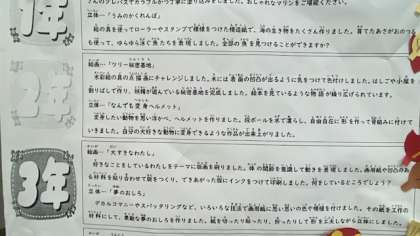 さんのクレパスでカラフルなかつ丁寧に塗り込みをしました。おしゃれなマリンをご堪能ください。
1年
立体…「うみのかくれんぼ」
絵の具を使ってローラーやスタンプで模様をつけた模造紙で、海の生き物をたくさん作りました。育てたあさがおのつる
も使って、ゆらゆら泳ぐ魚たちを表現しました。全部の魚を見つけることができますか?
2年
絵画…「ツリー秘密基地」
水彩絵の具の点描画にチャレンジしました。木には表面の凹凸が出るように気をつけて色付けしました。はしごや小屋を
割りばしで作り、妖精が遊んでいる秘密基地を完成しました。絵本を見ているような物語が繰り広げられています。
立体…「なんでも変身ヘルメット」
変身したい動物を思い浮かべ、ヘルメットを作りました。段ボールを水で濡らし、自由自在に形を作って骨組みに付けて
いきました。自分の大好きな動物に変身できるような作品が出来上がりました。
3年
絵画…「大すきなわたし」
好きなことをしているわたしをテーマに版画を刷りました。体の関節を意識して動きを表現しました。画用紙や凹凸のあ
る材料を貼り合わせて版をつくり、できあがった版にインクをつけて印刷しました。何をしているところでしょう?
立体…「夢のおしろ」
デカルコマニーやスパッタリングなど、いろいろな技法で画用紙に思い思いの色や模様を付けました。その紙を工作の
材料にして、素敵な夢のおしろを作りました。紙を切ったり貼ったり、折ったりして形を工夫しながら立体にしました。